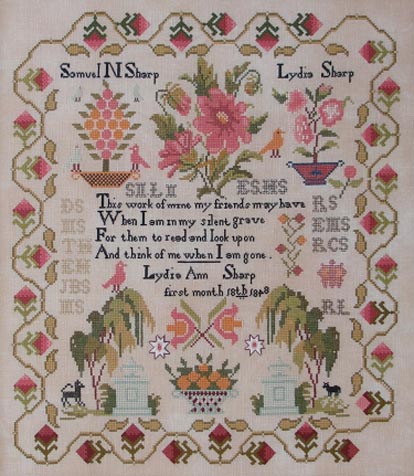 Samuel N Sharp Lydia Sharp
SILI ESHS
This work of mine my friends may have
When I am in my silent grave
For them to read and look upon
And think of me when I am gone.
Lydia Ann Sharp
first month 18th 1848
DS
MS
TH
EH
JBS
MS
RS
EMS
RCS
RL